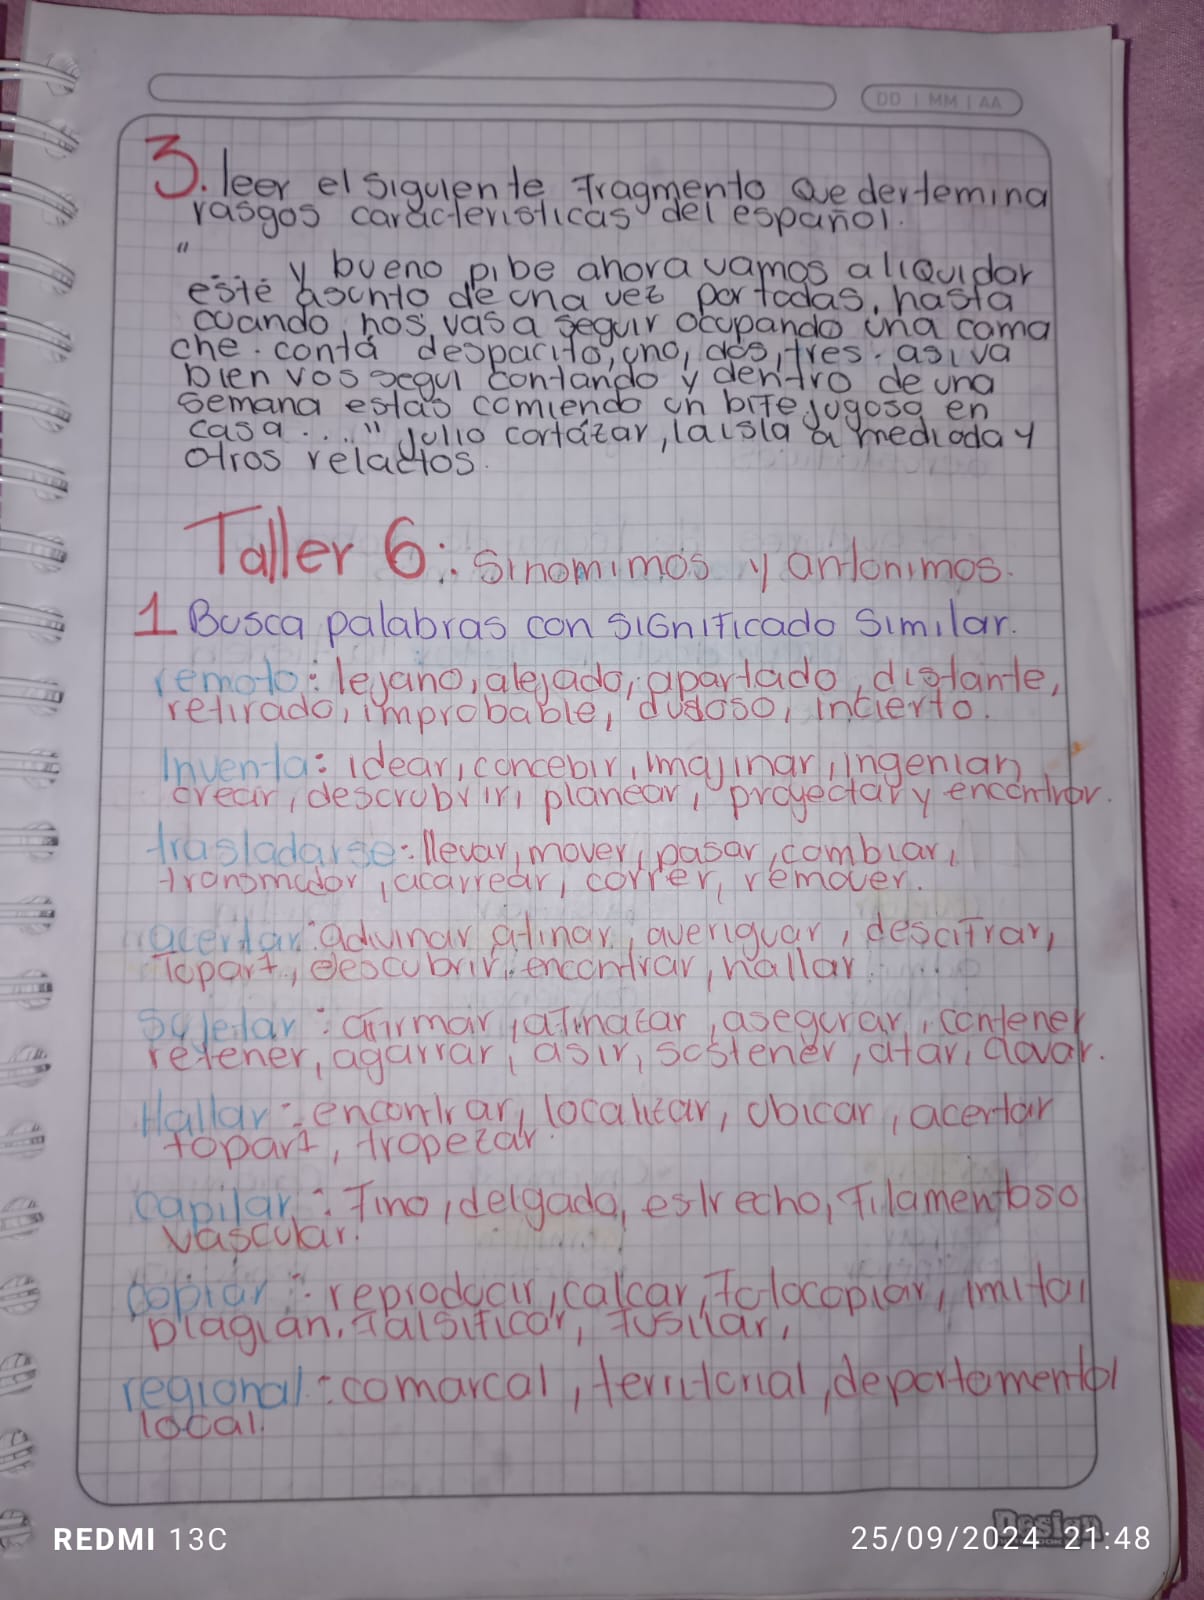 DD | MM | AA
3. leer el siguiente fragmento que dertemina
rasgos caracteristicas del español.
"
y bueno pibe ahora vamos a liquidar
este asunto de una vez por todas, hasta
cuando, nos, vas a seguir ocupando una cama
che. contá despacito, uno, dos, tres. asi va
bien vos segui contando y dentro de una
semana estás comiendo un bife jugoso en
casa ...." Julio cortázar, la isla a medioda y
otros relactos.
Taller 6: Sinomimos y antonimos.
1 Busca palabras con significado similar.
remoto: lejano, alejado, apartado, distante,
retirado, improbable, dudoso, incierto.
Inventa: idear, concebir, imajinar, ingenian
crear, descrubrir, planear, proyectar y encontrar.
trasladarse: llevar, mover, pasar, cambiar,
transmudar, acarrear, correr, remover.
acertar: advinar atinar, averiguar, descifrar,
topart, descubrir, encontrar, hallar.
Sujetar: afirmar, afinazar, asegurar, contener
retener, agarrar, asir, sostener, atar, clavar.
Hallar: encontrar, localizar, ubicar, acertar
topart, tropezar.
capilar: fino, delgado, estrecho, filamentoso
vascular.
copiar: reproducir, calcar, fotocopiar, imitar
plagian, falsificar, fusilar,
regional: comarcal, territorial, departamental
local.
Design
REDMI 13C
25/09/2024 21:48